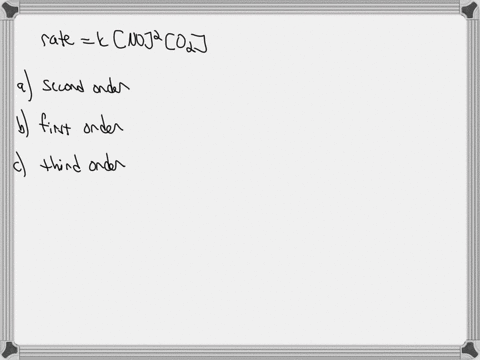 rate = k [NO]² [O₂]
a) second order
b) first order
c) third order